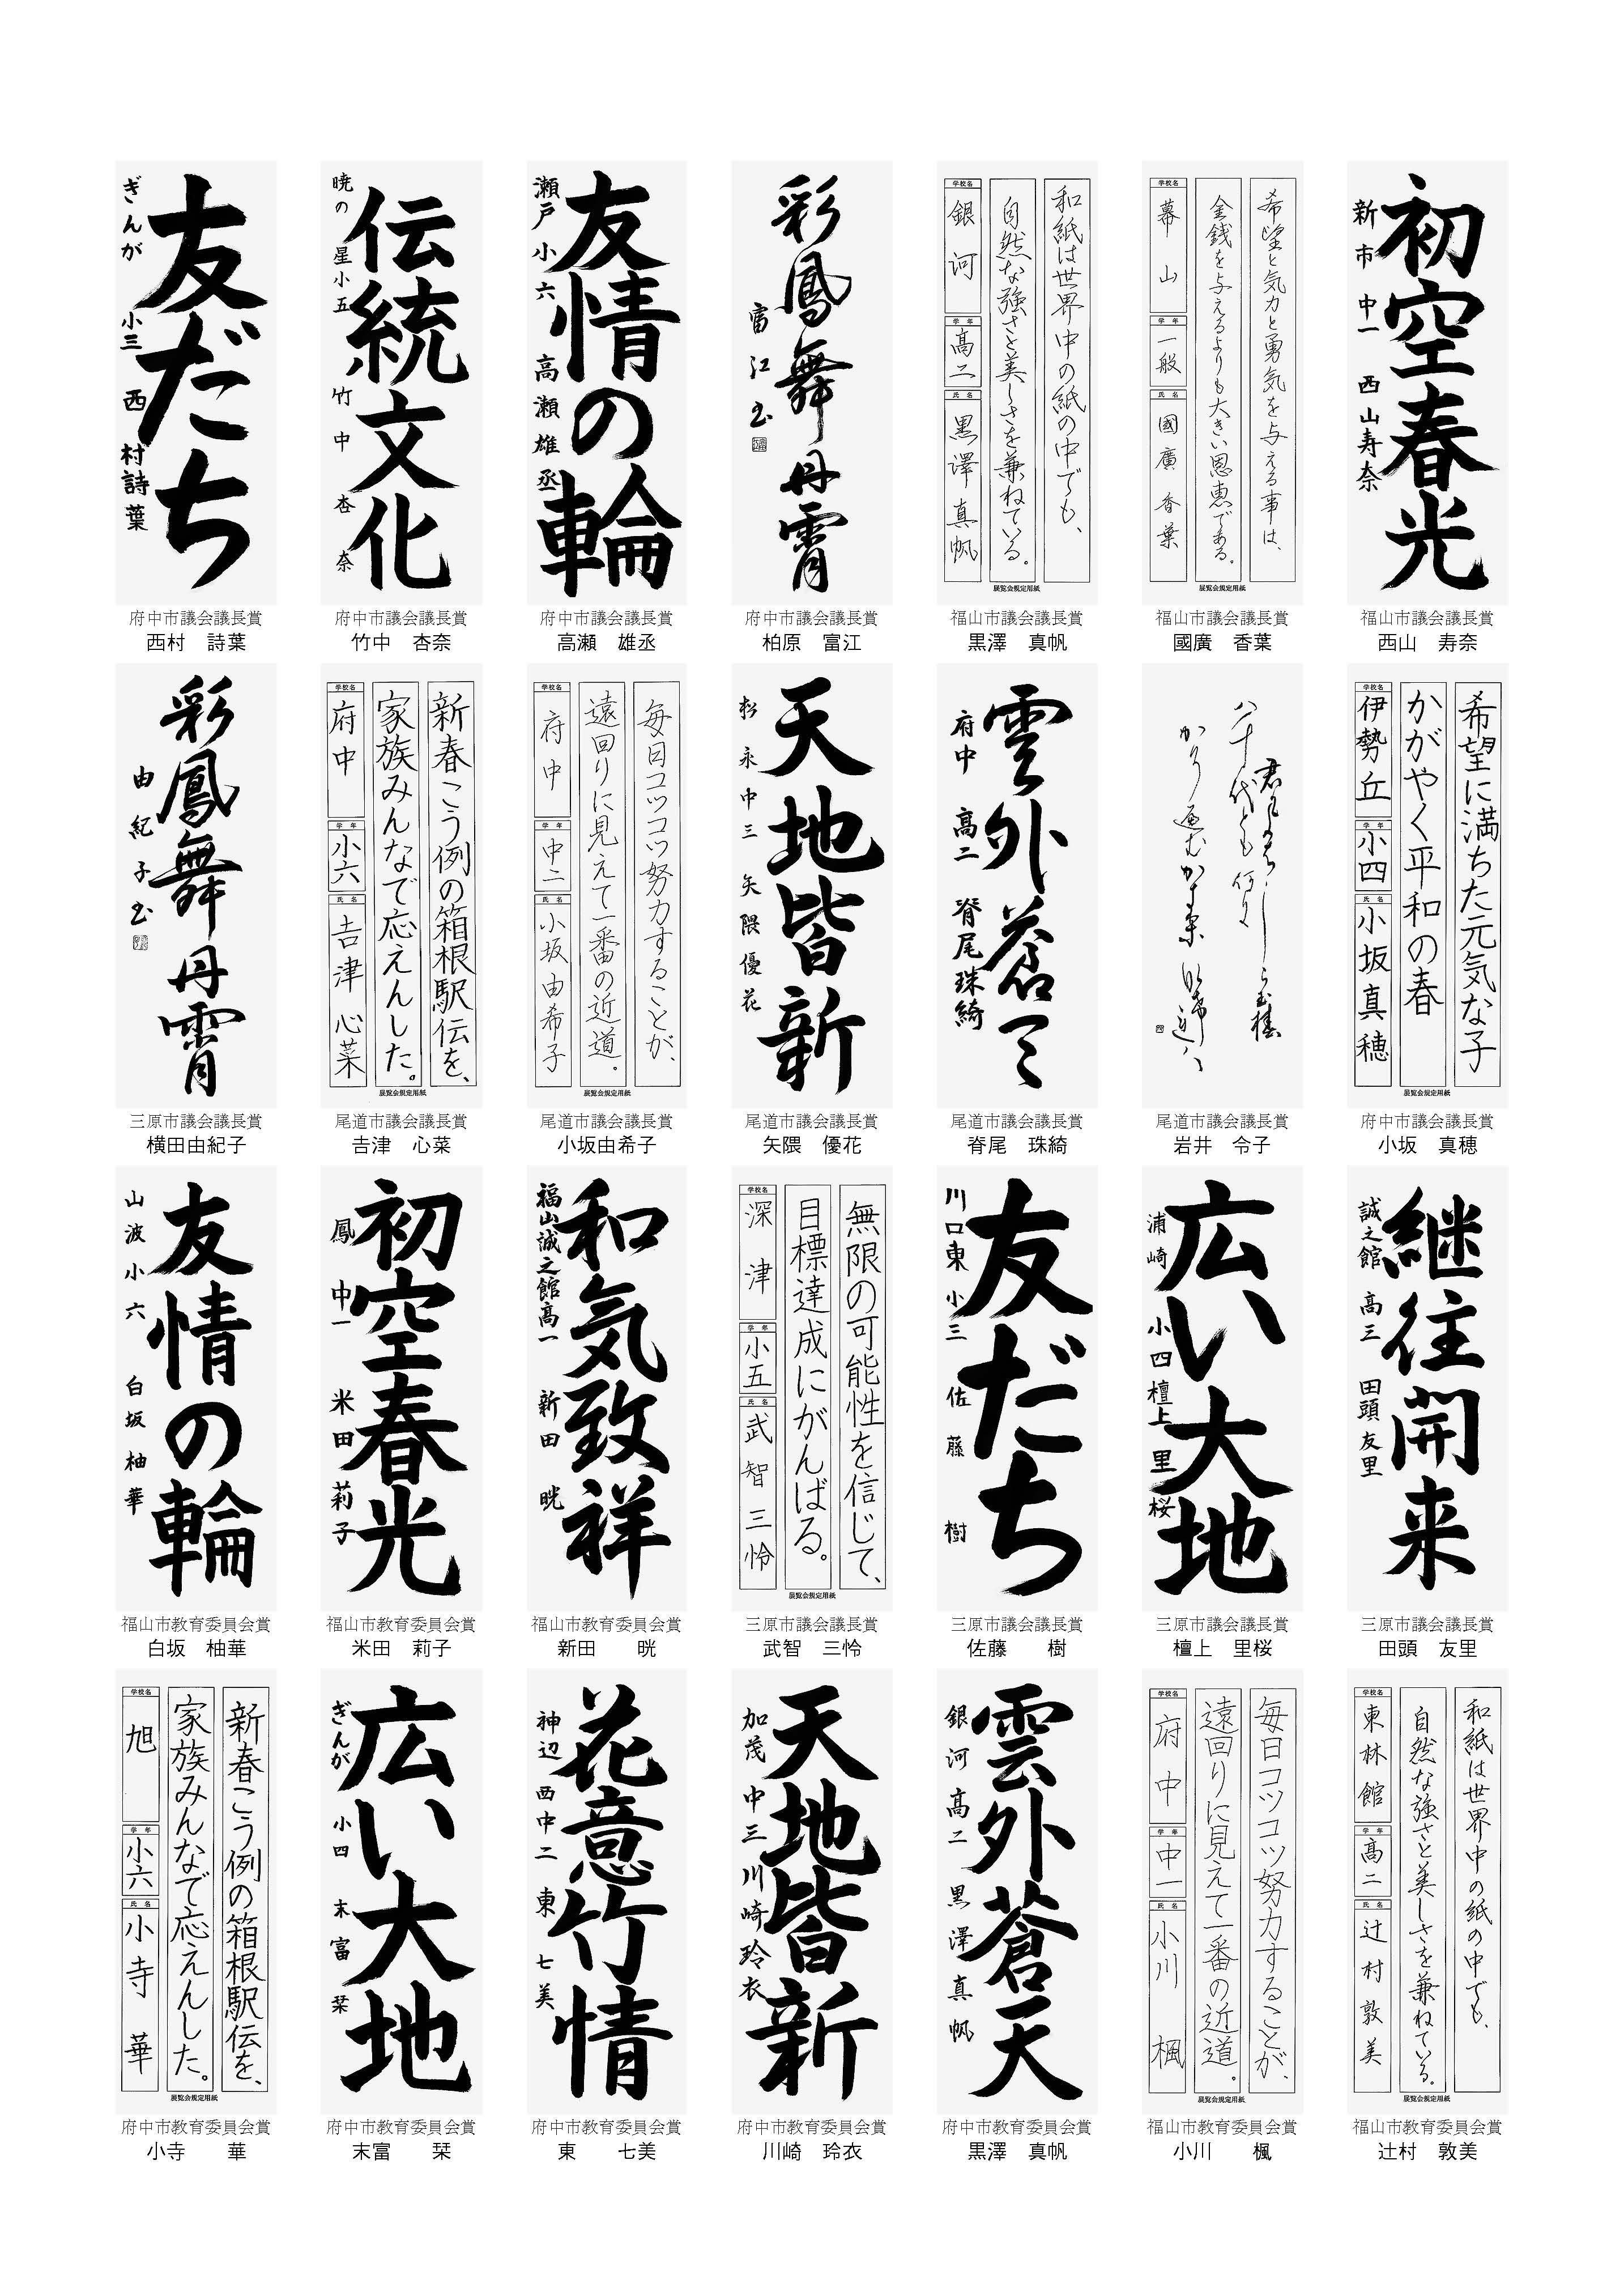 初空春光
新市 中一 西山寿奈
福山市議会議長賞
西山 寿奈
希望と気力と勇気を与える事は、
金銭を与えるよりも大きい恩恵である。
学校名 幕山 学年 一般 氏名 國廣香葉
展覧会規定用紙
福山市議会議長賞
國廣 香葉
和紙は世界中の紙の中でも、
自然な強さと美しさを兼ねている。
学校名 銀河 学年 高二 氏名 黒澤真帆
展覧会規定用紙
福山市議会議長賞
黒澤 真帆
彩鳳舞丹霄
富江書
府中市議会議長賞
柏原 富江
友情の輪
瀬戸小六 高瀬雄丞
府中市議会議長賞
高瀬 雄丞
伝統文化
暁の星小五 竹中杏奈
府中市議会議長賞
竹中 杏奈
友だち
ぎんが 小三 西村詩葉
府中市議会議長賞
西村 詩葉
希望に満ちた元気な子
かがやく平和の春
学校名 伊勢丘 学年 小四 氏名 小坂真穂
展覧会規定用紙
府中市議会議長賞
小坂 真穂
尾道市議会議長賞
岩井 令子
雲外蒼天
府中 高二 脊尾珠綺
尾道市議会議長賞
脊尾 珠綺
天地皆新
松永中三 矢隈優花
尾道市議会議長賞
矢隈 優花
毎日コツコツ努力することが、
遠回りに見えて一番の近道。
学校名 府中 学年 中二 氏名 小坂由希子
展覧会規定用紙
尾道市議会議長賞
小坂由希子
新春こう例の箱根駅伝を、
家族みんなで応えんした。
学校名 府中 学年 小六 氏名 吉津心菜
展覧会規定用紙
尾道市議会議長賞
吉津 心菜
彩鳳舞丹霄
由紀子書
三原市議会議長賞
横田由紀子
継往開来
誠之館 高三 田頭友里
三原市議会議長賞
田頭 友里
広い大地
浦崎 小四 檀上里桜
三原市議会議長賞
檀上 里桜
友だち
川口東 小三 佐藤樹
三原市議会議長賞
佐藤 樹
無限の可能性を信じて、
目標達成にがんばる。
学校名 深津 学年 小五 氏名 武智三怜
展覧会規定用紙
三原市議会議長賞
武智 三怜
和気致祥
福山誠之館高一 新田晄
福山市教育委員会賞
新田 晄
初空春光
鳳中一 米田莉子
福山市教育委員会賞
米田 莉子
友情の輪
山波小六 白坂柚華
福山市教育委員会賞
白坂 柚華
和紙は世界中の紙の中でも、
自然な強さと美しさを兼ねている。
学校名 東林館 学年 高二 氏名 辻村敦美
展覧会規定用紙
福山市教育委員会賞
辻村 敦美
毎日コツコツ努力することが、
遠回りに見えて一番の近道。
学校名 府中 学年 中一 氏名 小川楓
展覧会規定用紙
福山市教育委員会賞
小川 楓
雲外蒼天
銀河高二 黒澤真帆
府中市教育委員会賞
黒澤 真帆
天地皆新
加茂中三 川崎玲衣
府中市教育委員会賞
川崎 玲衣
花意竹情
神辺西中二 東七美
府中市教育委員会賞
東 七美
広い大地
ぎんが 小四 末富栞
府中市教育委員会賞
末富 栞
新春こう例の箱根駅伝を、
家族みんなで応えんした。
学校名 旭 学年 小六 氏名 小寺華
展覧会規定用紙
府中市教育委員会賞
小寺 華